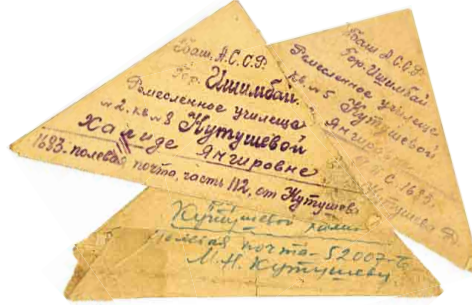 Баш. А.С.С.Р.
Гор. Ишимбай.
Ремесленное училеще
№2. кв. №8 Кутушевой
Хариде Янгировне
1693. полевая почта, часть 112, от Кутушева
Баш. А.С.С.Р.
Гор. Ишимбай
Ремесленное училеще
кв. №5 Кутушевой
Янгировне
С. 1693.
Кутушева
Кутушевой
Полевая почта - 52007-
М.Н. Кутушеву